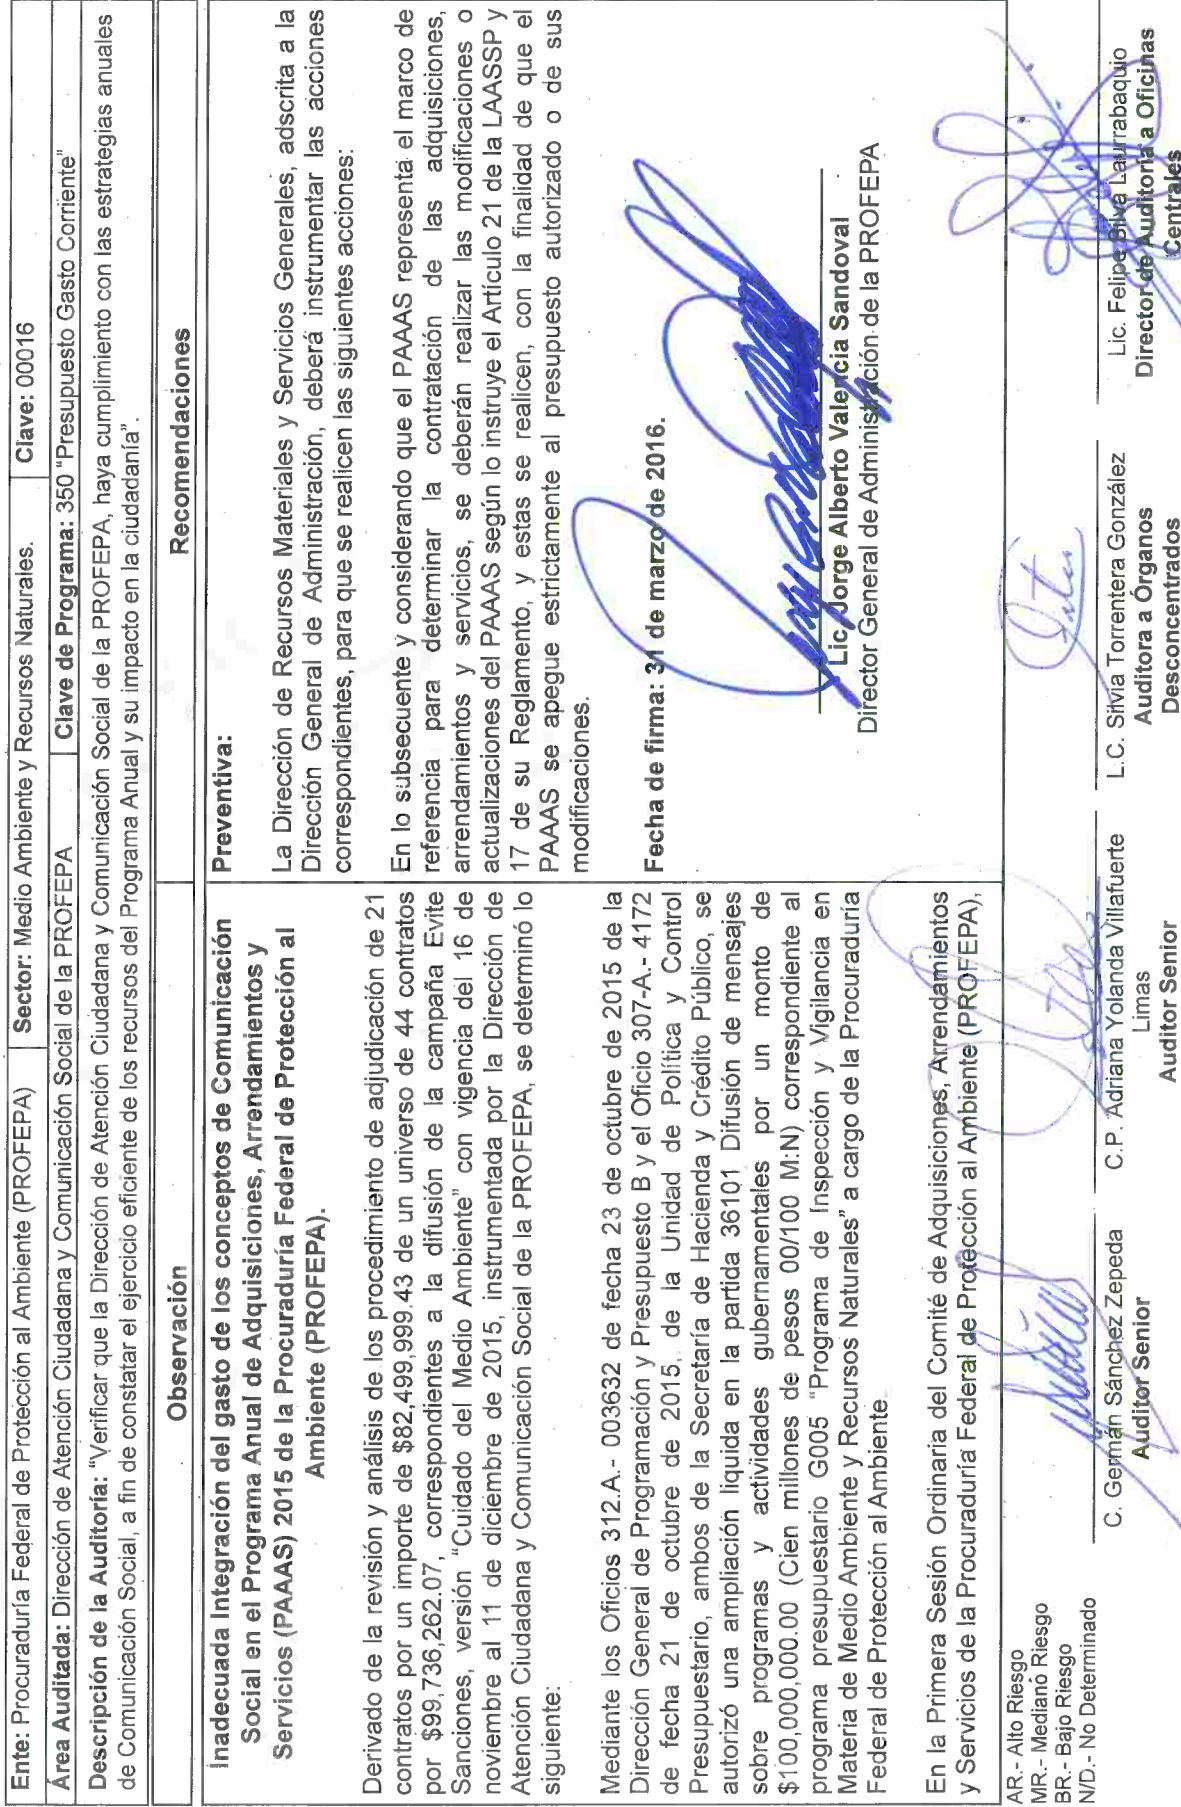 Ente: Procuraduría Federal de Protección al Ambiente (PROFEPA) Sector: Medio Ambiente y Recursos Naturales. Clave: 00016
Área Auditada: Dirección de Atención Ciudadana y Comunicación Social de la PROFEPA Clave de Programa: 350 "Presupuesto Gasto Corriente"
Descripción de la Auditoría: "Verificar que la Dirección de Atención Ciudadana y Comunicación Social de la PROFEPA, haya cumplimiento con las estrategias anuales
de Comunicación Social, a fin de constatar el ejercicio eficiente de los recursos del Programa Anual y su impacto en la ciudadanía".
Observación
Inadecuada Integración del gasto de los conceptos de Comunicación
Social en el Programa Anual de Adquisiciones, Arrendamientos y
Servicios (PAAAS) 2015 de la Procuraduría Federal de Protección al
Ambiente (PROFEPA).
Derivado de la revisión y análisis de los procedimiento de adjudicación de 21
contratos por un importe de $82,499,999.43 de un universo de 44 contratos
por $99,736,262.07, correspondientes a la difusión de la campaña Evite
Sanciones, versión "Cuidado del Medio Ambiente" con vigencia del 16 de
noviembre al 11 de diciembre de 2015, instrumentada por la Dirección de
Atención Ciudadana y Comunicación Social de la PROFEPA, se determinó lo
siguiente:
Mediante los Oficios 312.A.- 003632 de fecha 23 de octubre de 2015 de la
Dirección General de Programación y Presupuesto B y el Oficio 307-A.- 4172
de fecha 21 de octubre de 2015, de la Unidad de Política y Control
Presupuestario, ambos de la Secretaría de Hacienda y Crédito Público, se
autorizó una ampliación liquida en la partida 36101 Difusión de mensajes
sobre programas y actividades gubernamentales por un monto de
$100,000,000.00 (Cien millones de pesos 00/100 M:N) correspondiente al
programa presupuestario G005 "Programa de Inspección y Vigilancia en
Materia de Medio Ambiente y Recursos Naturales" a cargo de la Procuraduría
Federal de Protección al Ambiente
En la Primera Sesión Ordinaria del Comité de Adquisiciones, Arrendamientos
y Servicios de la Procuraduría Federal de Protección al Ambiente (PROFEPA),
Recomendaciones
Preventiva:
La Dirección de Recursos Materiales y Servicios Generales, adscrita a la
Dirección General de Administración, deberá instrumentar las acciones
correspondientes, para que se realicen las siguientes acciones:
En lo subsecuente y considerando que el PAAAS representa el marco de
referencia para determinar la contratación de las adquisiciones,
arrendamientos y servicios, se deberán realizar las modificaciones o
actualizaciones del PAAAS según lo instruye el Artículo 21 de la LAASSP y
17 de su Reglamento, y estas se realicen, con la finalidad de que el
PAAAS se apegue estrictamente al presupuesto autorizado o de sus
modificaciones.
Fecha de firma: 31 de marzo de 2016.
Lic. Jorge Alberto Valencia Sandoval
Director General de Administración de la PROFEPA
AR.- Alto Riesgo
MR.- Mediano Riesgo
BR.- Bajo Riesgo
N/D.- No Determinado
C. Germán Sánchez Zepeda
Auditor Senior
C.P. Adriana Yolanda Villafuerte
Limas
Auditor Senior
L.C. Silvia Torrentera González
Auditora a Órganos
Desconcentrados
Lic. Felipe Silva Laurrabaquio
Director de Auditoría a Oficinas
Centrales